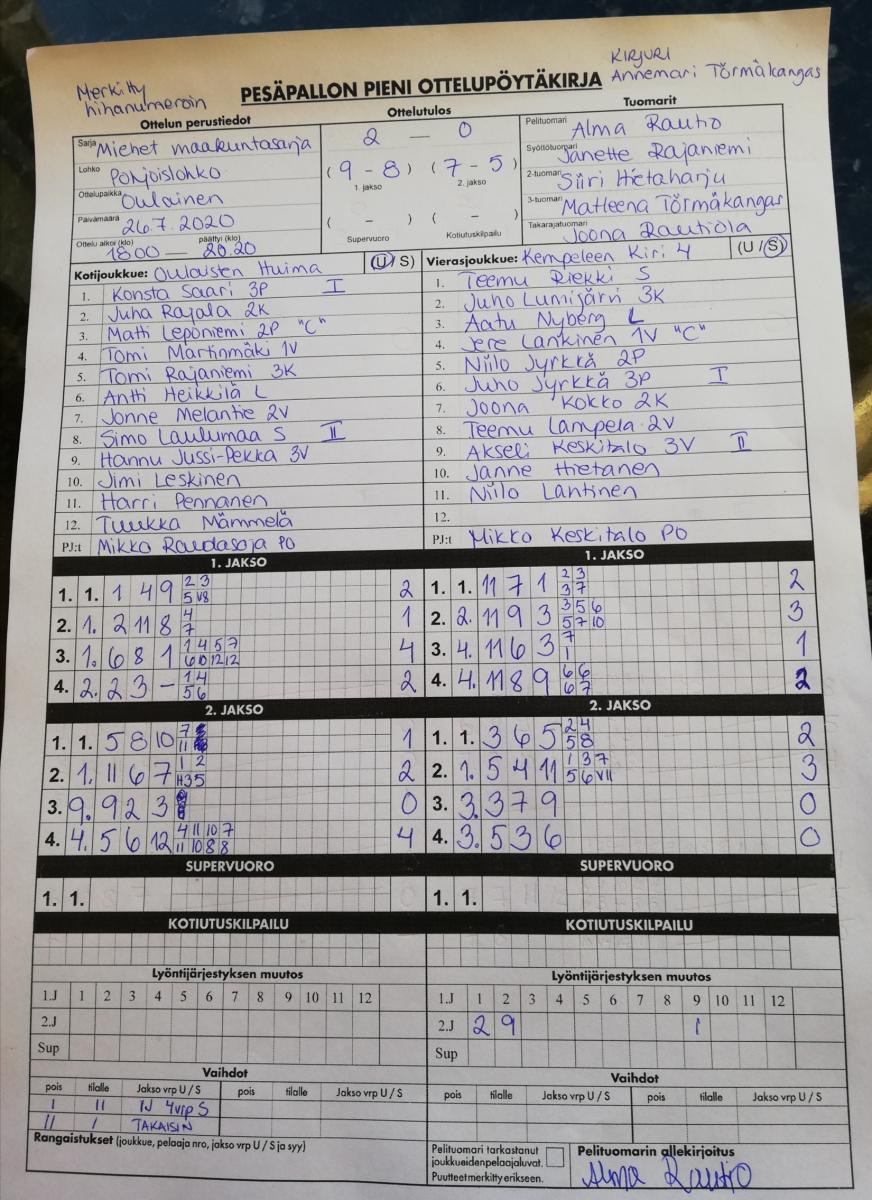 Merkitty
hihanumeroin
PESÄPALLON PIENI OTTELUPÖYTÄKIRJA
KIRJURI
Annemari Törmäkangas
Ottelun perustiedot
Sarja Miehet maakuntasarja
Lohko Pohjoislohko
Ottelupaikka Oulainen
Päivämäärä 26.7.2020
Ottelu alkoi (klo) päättyi (klo)
1800 — 20.20
Ottelutulos
2 — 0
( 9 - 8 ) ( 7 - 5 )
1. jakso 2. jakso
( - ) ( - )
Supervuoro Kotiutuskilpailu
Tuomarit
Pelituomari Alma Rautio
Syöttötuomari Janette Rajaniemi
2-tuomari Siiri Hietaharju
3-tuomari Matleena Törmäkangas
Takarajatuomari Joona Rautiola
Kotijoukkue: Oulaisten Huima (U/ S)
1. Konsta Saari 3P I
2. Juha Rajala 2K
3. Matti Leponiemi 2P "C"
4. Tomi Martinmäki 1V
5. Tomi Rajaniemi 3K
6. Antti Heikkilä L
7. Jonne Melantie 2V
8. Simo Laulumaa S II
9. Hannu Jussi-Pekka 3V
10. Jimi Leskinen
11. Harri Pennanen
12. Tuukka Mämmelä
PJ:t Mikko Raudasoja PO
Vierasjoukkue: Kempeleen Kiri 4 (U / S)
1. Teemu Riekki S
2. Juho Lumijärvi 3K
3. Aatu Nyberg L
4. Jere Lankinen 1V "C"
5. Niilo Jyrkkä 2P
6. Juho Jyrkkä 3P I
7. Joona Kokko 2K
8. Teemu Lampela 2V
9. Akseli Keskitalo 3V II
10. Janne Hietanen
11. Niilo Lantinen
12.
PJ:t Mikko Keskitalo PO
1. JAKSO
1. 1. 1 4 9 2 3 2
5 V8
2. 1. 2 11 8 4 1
7
3. 1. 6 8 1 1 4 5 7 4
6 10 12 12
4. 2. 2 3 - 1 4 2
5 6
1. JAKSO
1. 1. 11 7 1 2 3 2
3 7
2. 2. 11 9 3 3 5 6 3
5 7 10
3. 4. 11 6 3 7 1
1
4. 4. 11 8 9 6 6 2
6 7
2. JAKSO
1. 1. 5 8 10 7 1
11
2. 1. 11 6 7 1 2 2
H3 5
3. 9. 9 2 3 0
4. 4. 5 6 12 4 11 10 7 4
11 10 8 8
2. JAKSO
1. 1. 3 6 5 2 4 2
5 8
2. 1. 5 4 11 1 3 7 3
5 6 V11
3. 3. 3 7 9 0
4. 3. 5 3 6 0
SUPERVUORO
1. 1.
SUPERVUORO
1. 1.
KOTIUTUSKILPAILU
KOTIUTUSKILPAILU
Lyöntijärjestyksen muutos
1.J 1 2 3 4 5 6 7 8 9 10 11 12
2.J
Sup
Lyöntijärjestyksen muutos
1.J 1 2 3 4 5 6 7 8 9 10 11 12
2.J 2 9 1
Sup
Vaihdot
pois tilalle Jakso vrp U / S pois tilalle Jakso vrp U / S
1 11 1J 4vrp S
11 1 TAKAISIN
Vaihdot
pois tilalle Jakso vrp U / S pois tilalle Jakso vrp U / S
Rangaistukset (joukkue, pelaaja nro, jakso vrp U / S ja syy)
Pelituomari tarkastanut
joukkueidenpelaajaluvat.
Puutteet merkitty erikseen.
Pelituomarin allekirjoitus
Alma Rautio